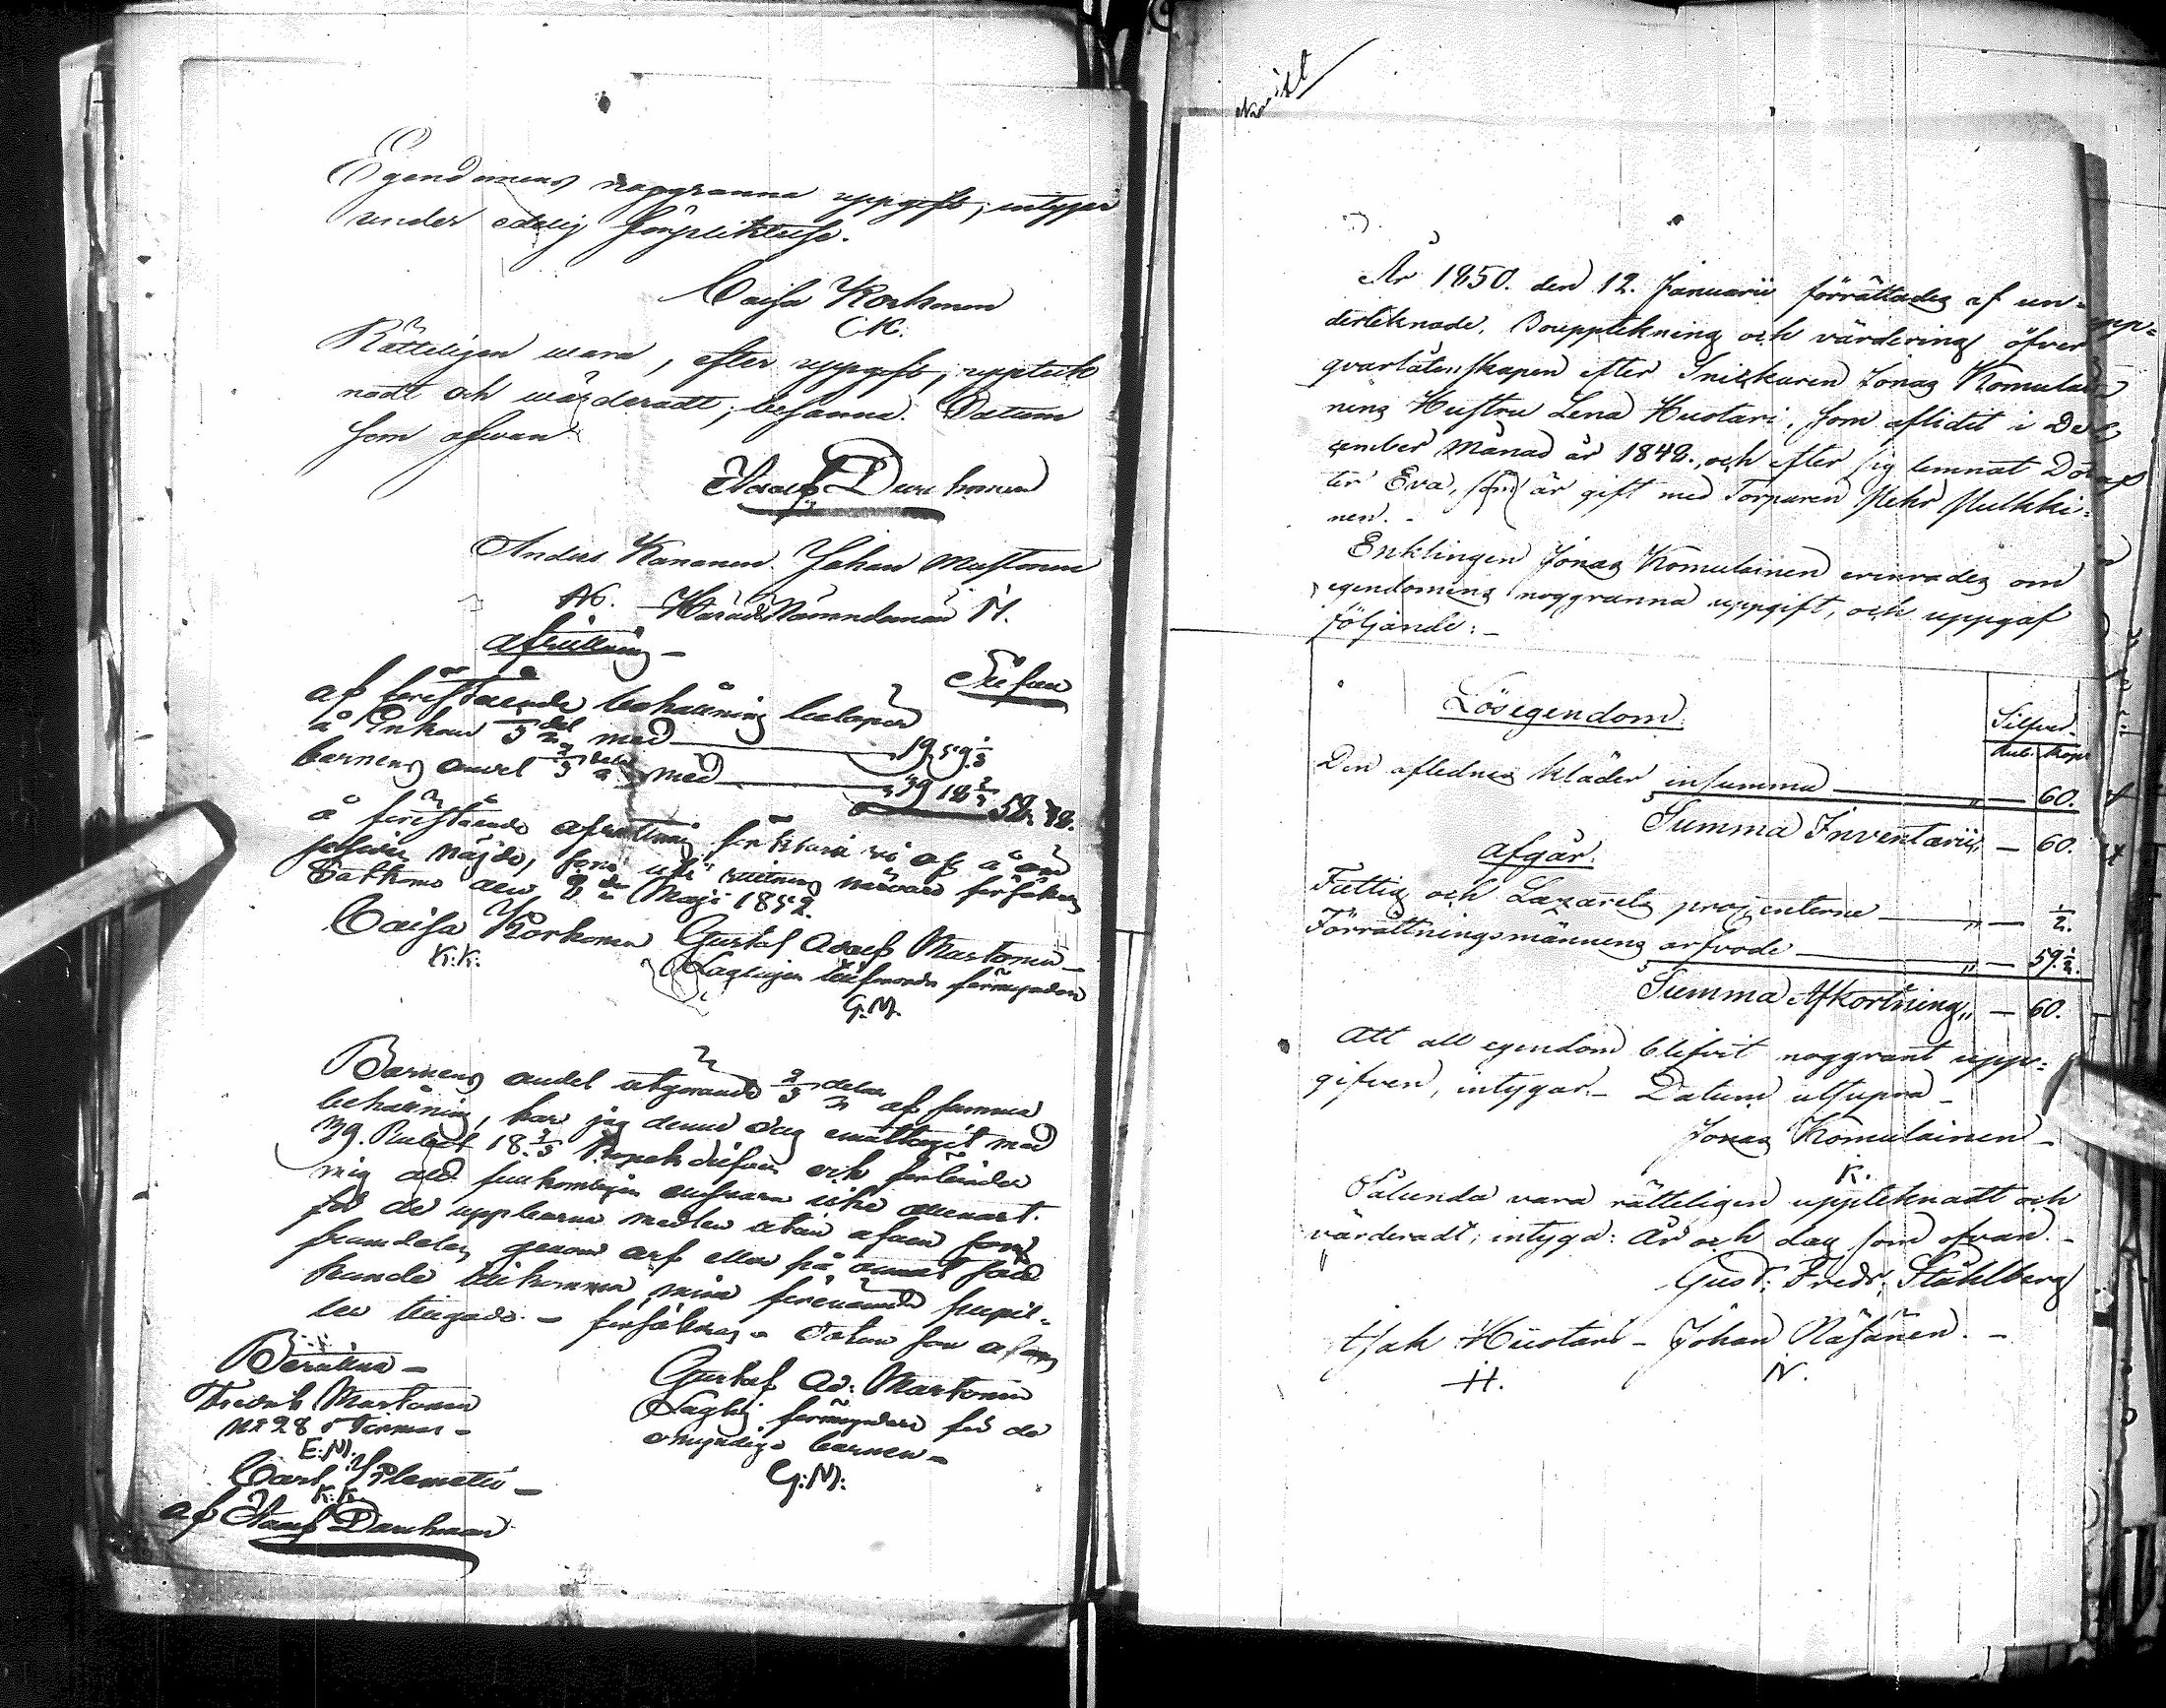 Egendomens noggranna uppgift, intygar
under edelig förpliktelse.
Caisa Korhonen
C K.
Rätteligen vara, efter uppgift, upptek
nadt och wärderadt, besanna. Datum
som ofwan
Anders Kananen Johan Mustonen
Härads Nämndeman M.
afvittring –
Silfver
af förestående behållning belöper
å Enkan 1/3 del med — 19 59 1/3
barnens andel 2/3 delar med — 39 18 2/3 58. 78.
å förestående afvittring förklara vi oss å
nöjde, som vittnens närvaro försäkras
Sotkamo den 8 de Maji 1852.
Caisa Korhonen Gustaf Adolf Martonen –
K: K.
Lagligen förmyndare
G. M.
Barnens andel utgörande 2/3 delar af samma
behållning, har jag denna dag emottagit med
39. Rubel 18 2/3 Kopek Silfver och förbinder
mig att
för de uppburna medlen utan afven som
framdeles genom arf eller på annat sätt
kunde tilkomma mina förenämnde pupil-
ler – försäkras – Datum som ofvan
Bevittna –
Gustaf Ad: Martonen
Fredrik Martonen
Laglig förmyndare för de
No 28
omyndige barnen –
E: M.
G: M:
Carl
K: K.
af

År 1850. den 12. Januarii förrättades af un-
derteknade, Boupptekning och värdering öfver
qvarlåtenskapen efter Snickaren Jonas Komulai-
nens Hustru Lena Huotari, som aflidit i De-
cember Månad år 1848., och efter sig lemnat Dot-
ter Eva, som är gift med Torparen Pehr Pulkki-
nen. –
Enklingen Jonas Komulainen erinrades om
egendomens noggranna uppgift, och uppgaf
följande: –
Lösegendom.
Silfver.
Rub. Kop.
Den aflednes kläder insumma — " — 60.
Summa Inventarii, — 60.
Afgår.
Fattig och Lazaretts procenterne — " — 1/2.
Förrättningsmännens arfvode — " — 59 1/2.
Summa Afkortning " — 60.
Att all egendom blifvit noggrant upp-
gifven, intygar – Datum utsupra –
Jonas Komulainen –
K.
Sålunda vara rätteligen uppteknadt och
värderadt, intyga: År och dag som ofvan. –
Gust: Fredr: Ståhlberg
Isak Huotari – Johan Näsänen. –
H. N.